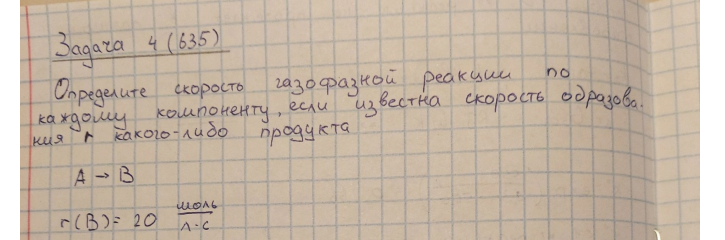 Задача 4 (635)
Определите скорость газофазной реакции по
каждому компоненту, если известна скорость образова.
ния r какого-либо продукта
A → B
r(B) = 20 моль/л·с